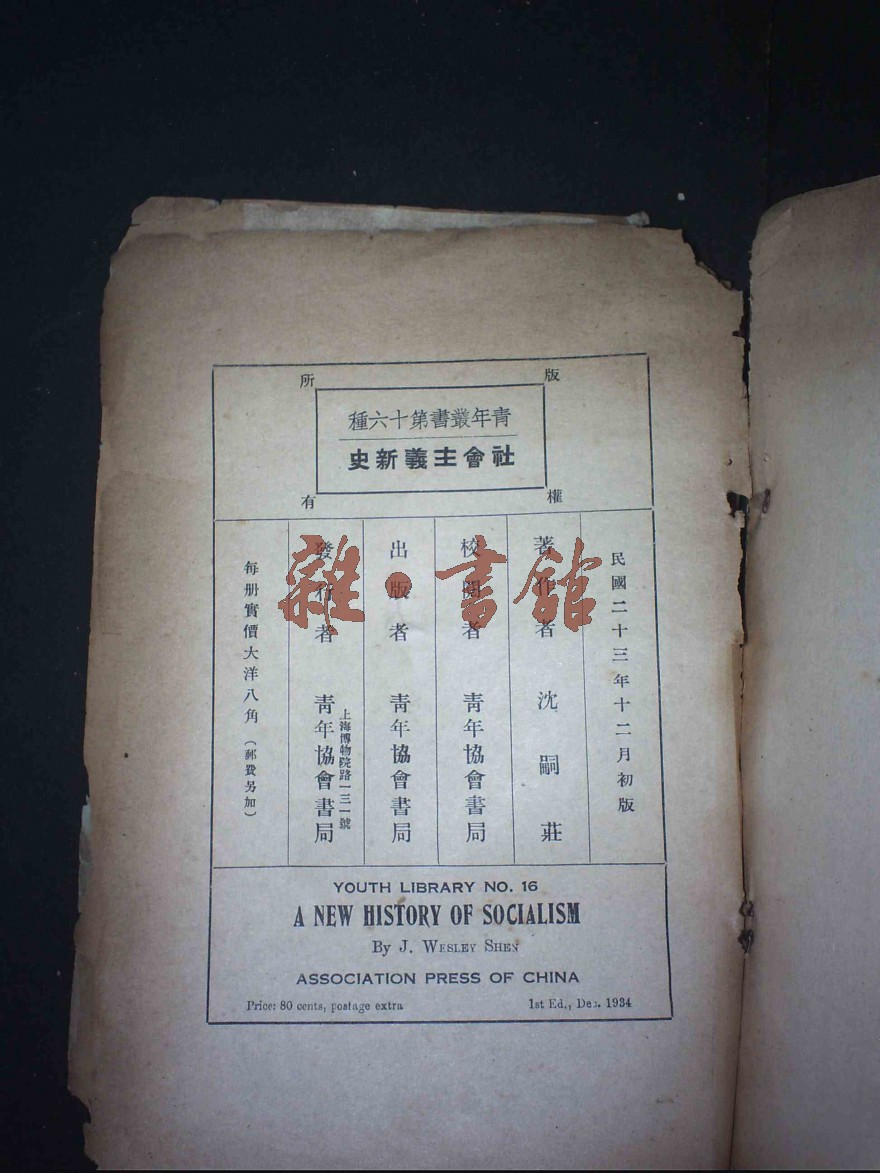 版權所有
青年叢書第十六種
社會主義新史
民國二十三年十二月初版
著作者 沈嗣莊
校閱者 青年協會書局
出版者 青年協會書局
上海博物院路一三一號
發行者 青年協會書局
每册實價大洋八角（郵費另加）
雜·書館
YOUTH LIBRARY NO. 16
A NEW HISTORY OF SOCIALISM
By J. WESLEY SHEN
ASSOCIATION PRESS OF CHINA
Price: 80 cents, postage extra
1st Ed., Dec. 1934